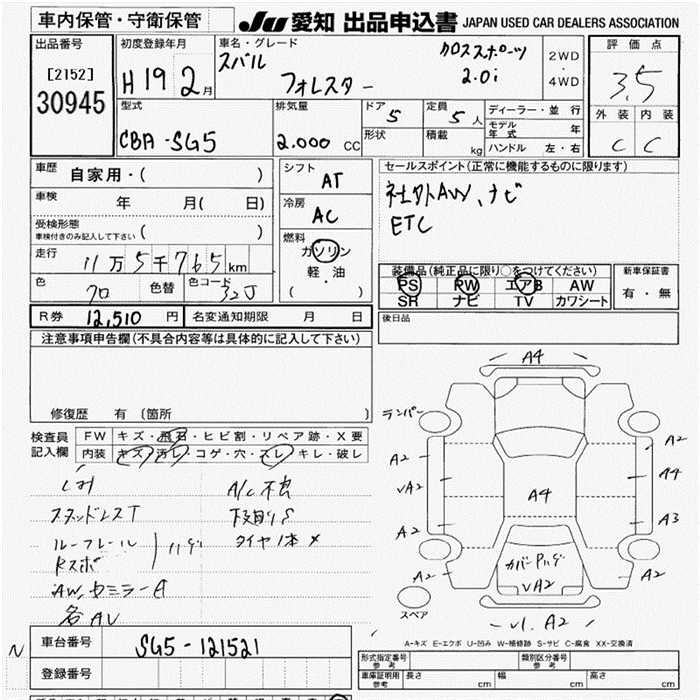 車内保管・守衛保管
JU 愛知 出品申込書 JAPAN USED CAR DEALERS ASSOCIATION
出品番号
[2152]
30945
初度登録年月
H 19 2 月
車名・グレード
スバル
フォレスター
クロススポーツ
2.0i
2WD
・
4WD
評価点
3.5
外装 内装
C C
型式
CBA-SG5
排気量
2.000 CC
ドア
5
形状
定員
5 人
積載
kg
ディーラー・並行
モデル年式 年
ハンドル 左・右
車歴
自家用・( )
車検
年 月( 日)
受検形態
車検付きのみ記入して下さい ( )
走行
11万5千765km
色
クロ
色替
色コード
32J
シフト
AT
冷房
AC
燃料
ガソリン
軽・油
( )
セールスポイント(正常に機能するものに限ります)
社外AW、ナビ
ETC
装備品(純正品に限り○をつけてください)
PS PW エアB AW
SR ナビ TV カワシート
新車保証書
有・無
R券 12,510 円
名変通知期限 月 日
後日品
注意事項申告欄(不具合内容等は具体的に記入して下さい)
修復歴 有 〔箇所 〕
検査員
記入欄
FW キズ・飛石・ヒビ割・リペア跡・X要
内装 キズ・汚レ・コゲ・穴・スレ・キレ・破レ
A/C不良
スタッドレスT
下廻りS
ルーフレール
タイヤ1本×
Rスポ
ハゲ
各AU
A4
ランバー
A2
A2
VA2
A4
A4
A2
A3
A2
A2
VA2
スペア
V1.A2
A-キズ E-エクボ U-凹み W-補修跡 S-サビ C-腐食 XX-交換済
N
車台番号
SG5-121521
登録番号
型式指定番号
参考
類別区分番号
参考
車庫証明用
参考
長さ cm
幅 cm
高さ cm